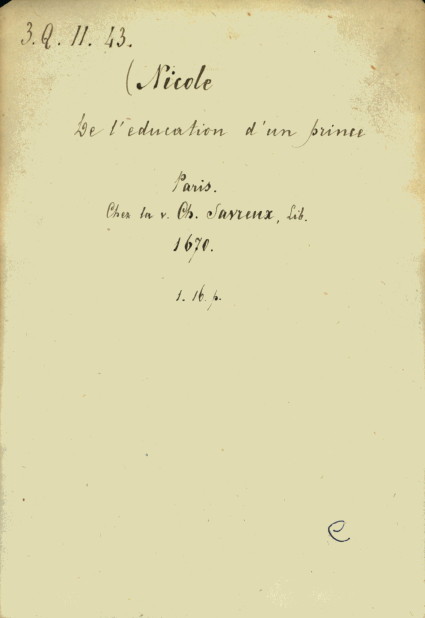 3. Q. 11. 43.
(Nicole
De l'education d'un prince
Paris.
Chez la v. Ch. Savreux, Lib.
1670.
1. 16. p.
C